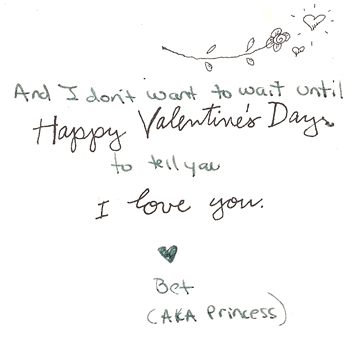 And I don't want to wait until
Happy Valentine's Days
to tell you
I love you.
Bet
(AKA Princess)